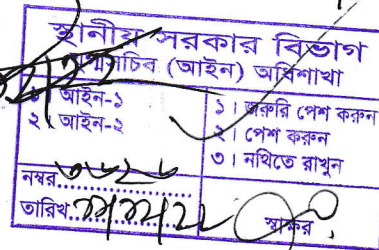 স্থানীয় সরকার বিভাগ
যুগ্মসচিব (আইন) অধিশাখা
১। আইন-১
২। আইন-২
১। জরুরি পেশ করুন
২। পেশ করুন
৩। নথিতে রাখুন
নম্বর..................
তারিখ..................
স্বাক্ষর